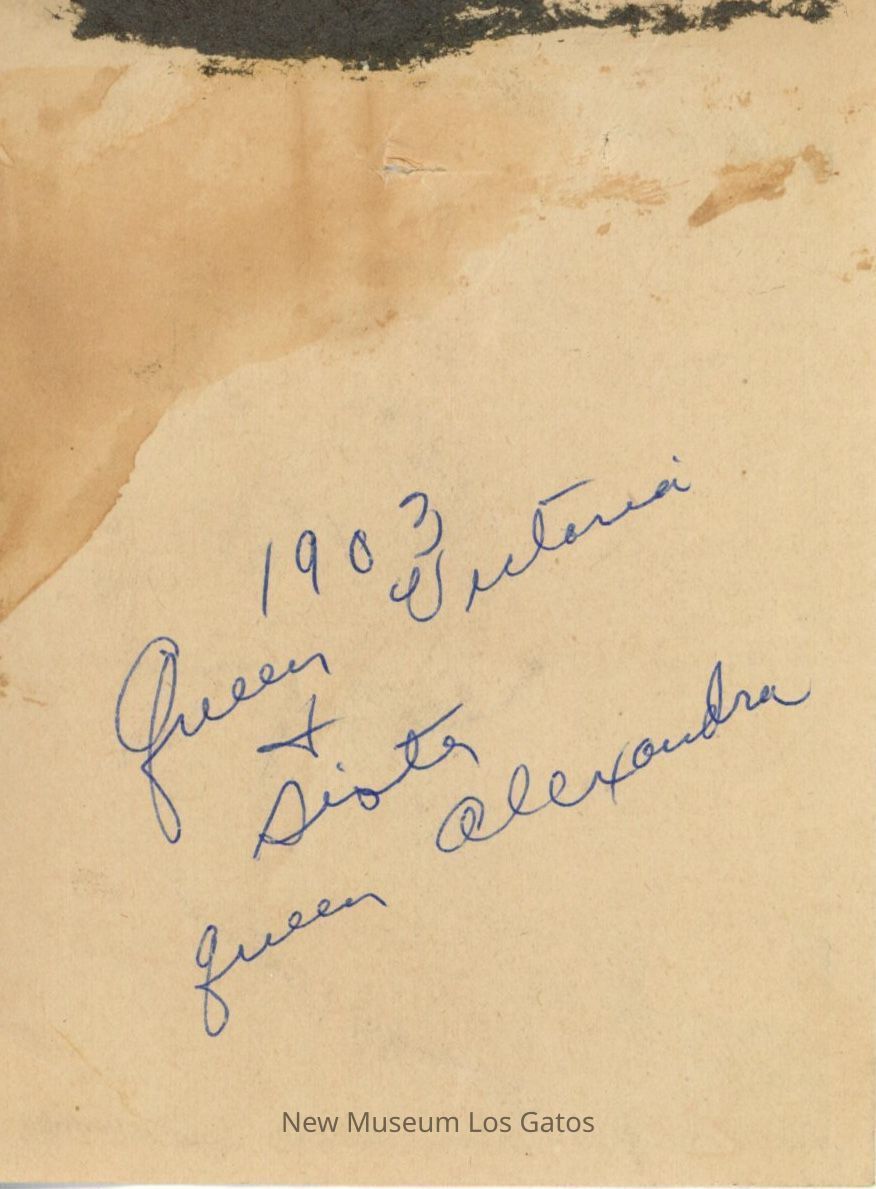 1903
Queen Victoria
+
Sister
queen Alexandra
New Museum Los Gatos